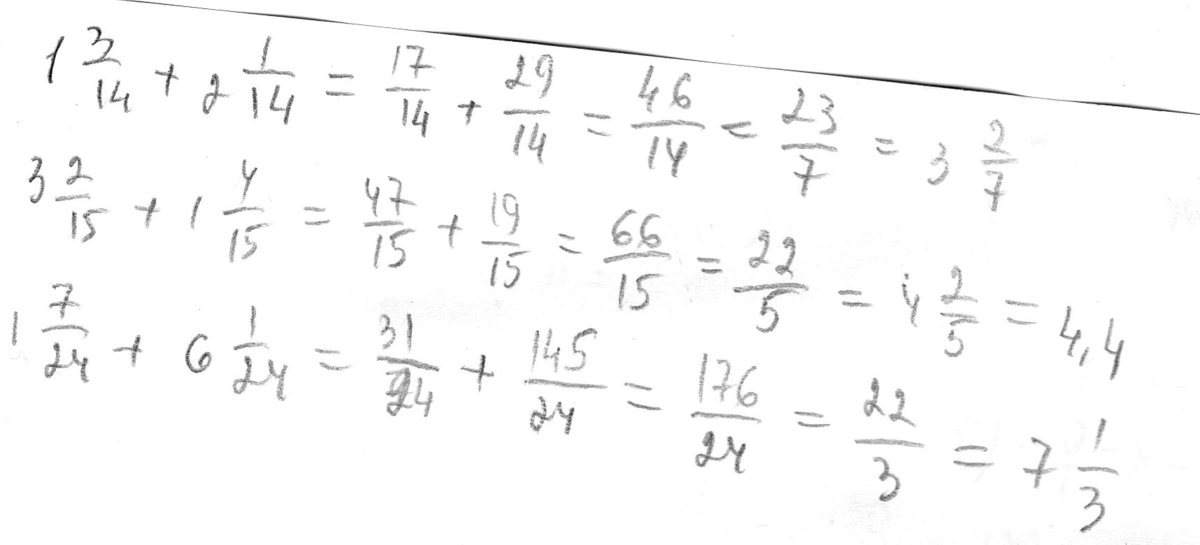 1 3/14 + 2 1/14 = 17/14 + 29/14 = 46/14 = 23/7 = 3 2/7
3 2/15 + 1 4/15 = 47/15 + 19/15 = 66/15 = 22/5 = 4 2/5 = 4,4
1 7/24 + 6 1/24 = 31/24 + 145/24 = 176/24 = 22/3 = 7 1/3